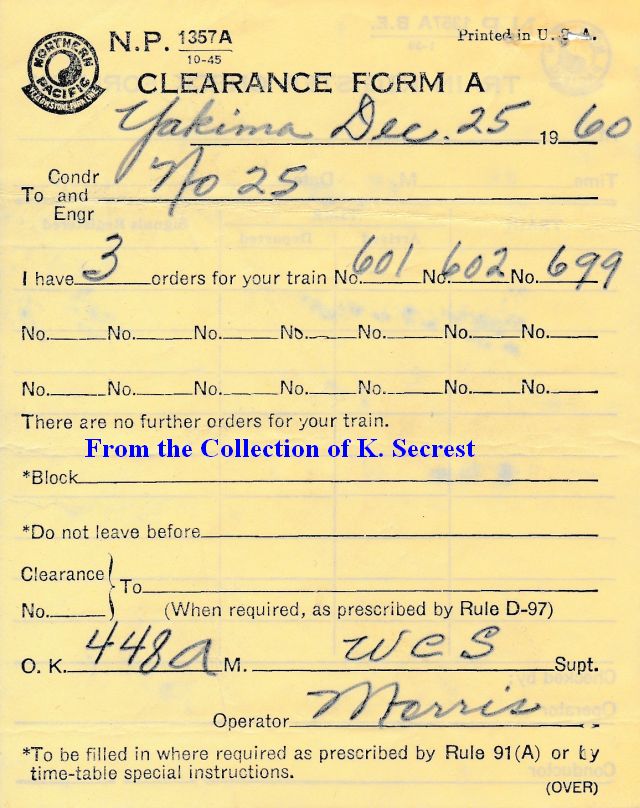 NORTHERN PACIFIC YELLOWSTONE PARK LINE
N.P. 1357A
10-45
Printed in U. S. A.
CLEARANCE FORM A
Yakima Dec. 25 1960
Condr
To and No 25
Engr
I have 3 orders for your train No. 601 No. 602 No. 699
No. No. No. No. No. No. No.
No. No. No. No. No. No. No.
There are no further orders for your train.
From the Collection of K. Secrest
*Block
*Do not leave before
Clearance
To
No.
(When required, as prescribed by Rule D-97)
O. K. 448a M. WCS Supt.
Operator Morris
*To be filled in where required as prescribed by Rule 91(A) or by
time-table special instructions.
(OVER)